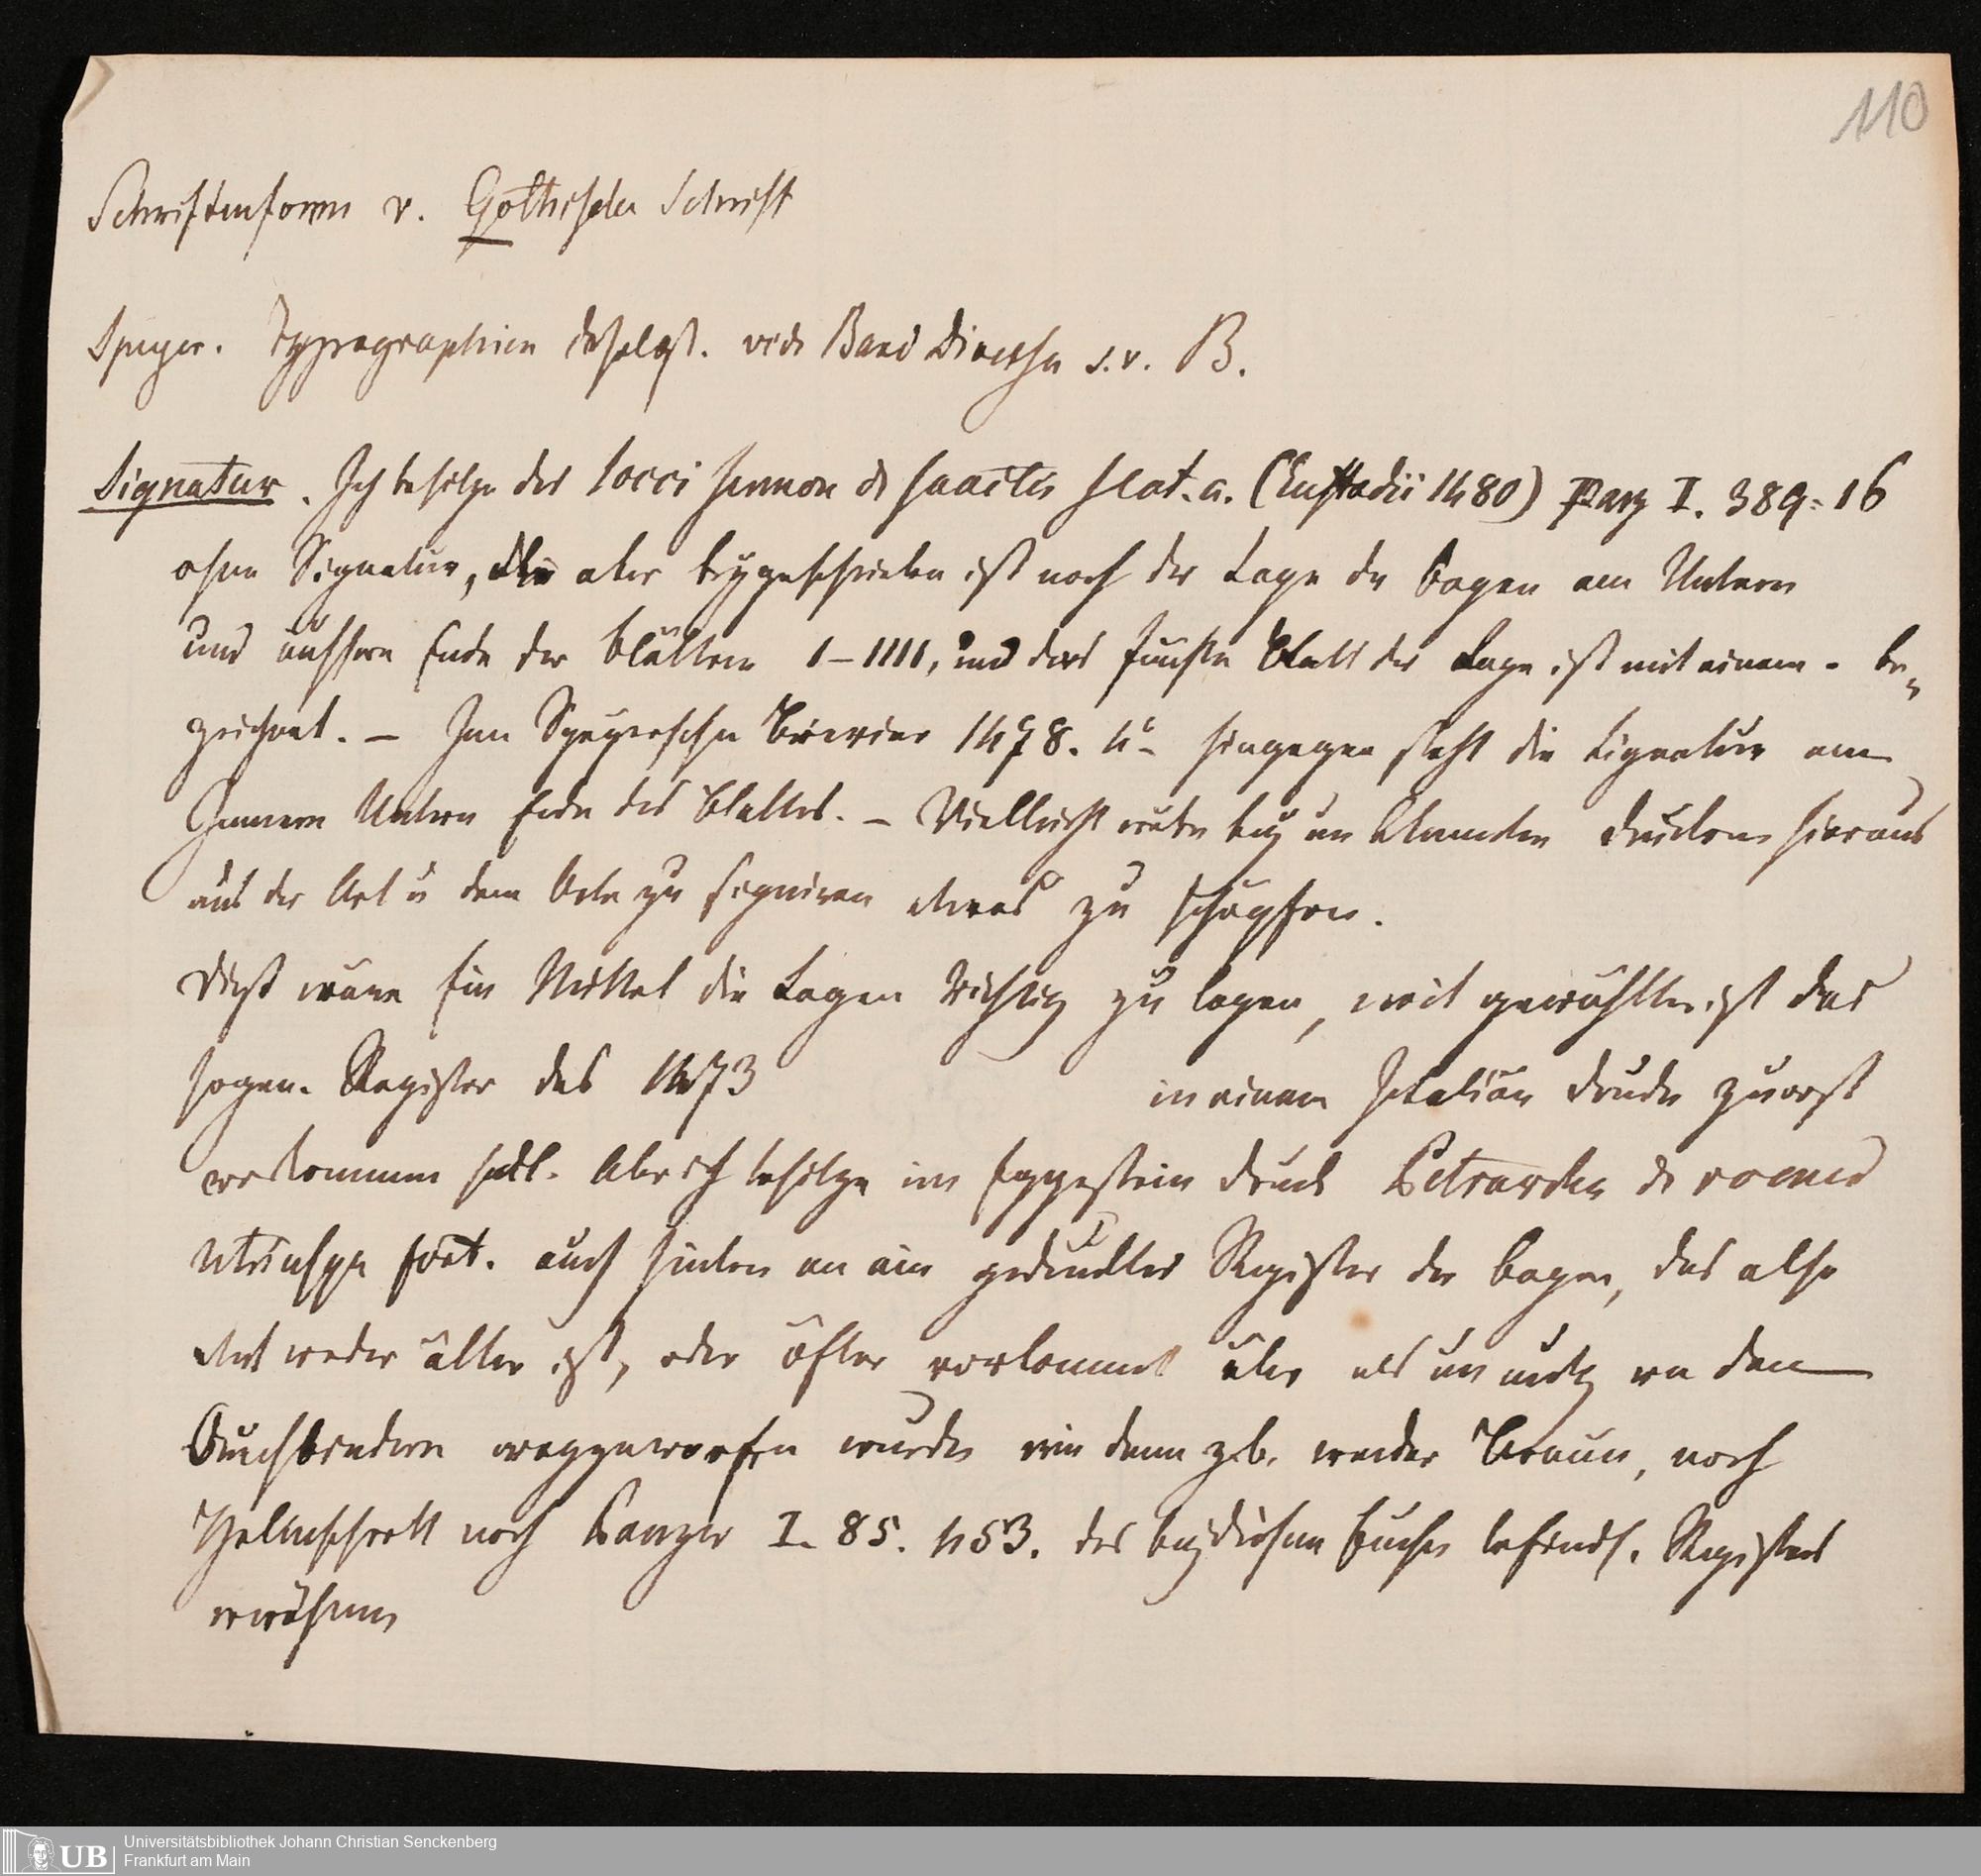 110
Schriftenform v. Gothischer Schrift
Speyer. Typographien daselbst. vide Band Diverse s.v. B.
Signatur. Ich besitze des Socci sermon de sanctis s l et a. (Eustadii 1480) Panz I. 389. 16
ohne Signatur, die aber beygeschrieben ist nach der Lage der Bogen am Untern
und äussern Ende der Blättern 1–1111, und das fünfte Blatt der Lage ist mit einem - be„
zeichnet. – Im Speyerschen Brevier 1478. 4° hingegen steht die Signatur am
Innern Untern Ende des Blattes. – Vielleicht wäre bey un bekannten Druckern hieraus
aus der Art u dem Orte zu signiren etwas zu schöpfen.
Diess wäre ein Mittel die Lagen richtig zu legen, weit gewählter ist das
sogen. Register das 1473
in einem Italiän Drucke zuerst
vorkommen soll. Aber ich besitze im Eggestein Druck Petrarcha de remed
utriusque fort. auch hinten an ein gedrucktes Register der Bogen, das also
entweder älter ist, oder öfter vorkommt aber als unnütz von den
Buchbindern weggeworfen wurde wie denn z.b. weder Braun, noch
Helmschrott noch Panzer I. 85. 453. des bey diesem Buche befindl. Registers
erwähnen
Universitätsbibliothek Johann Christian Senckenberg
Frankfurt am Main
UB